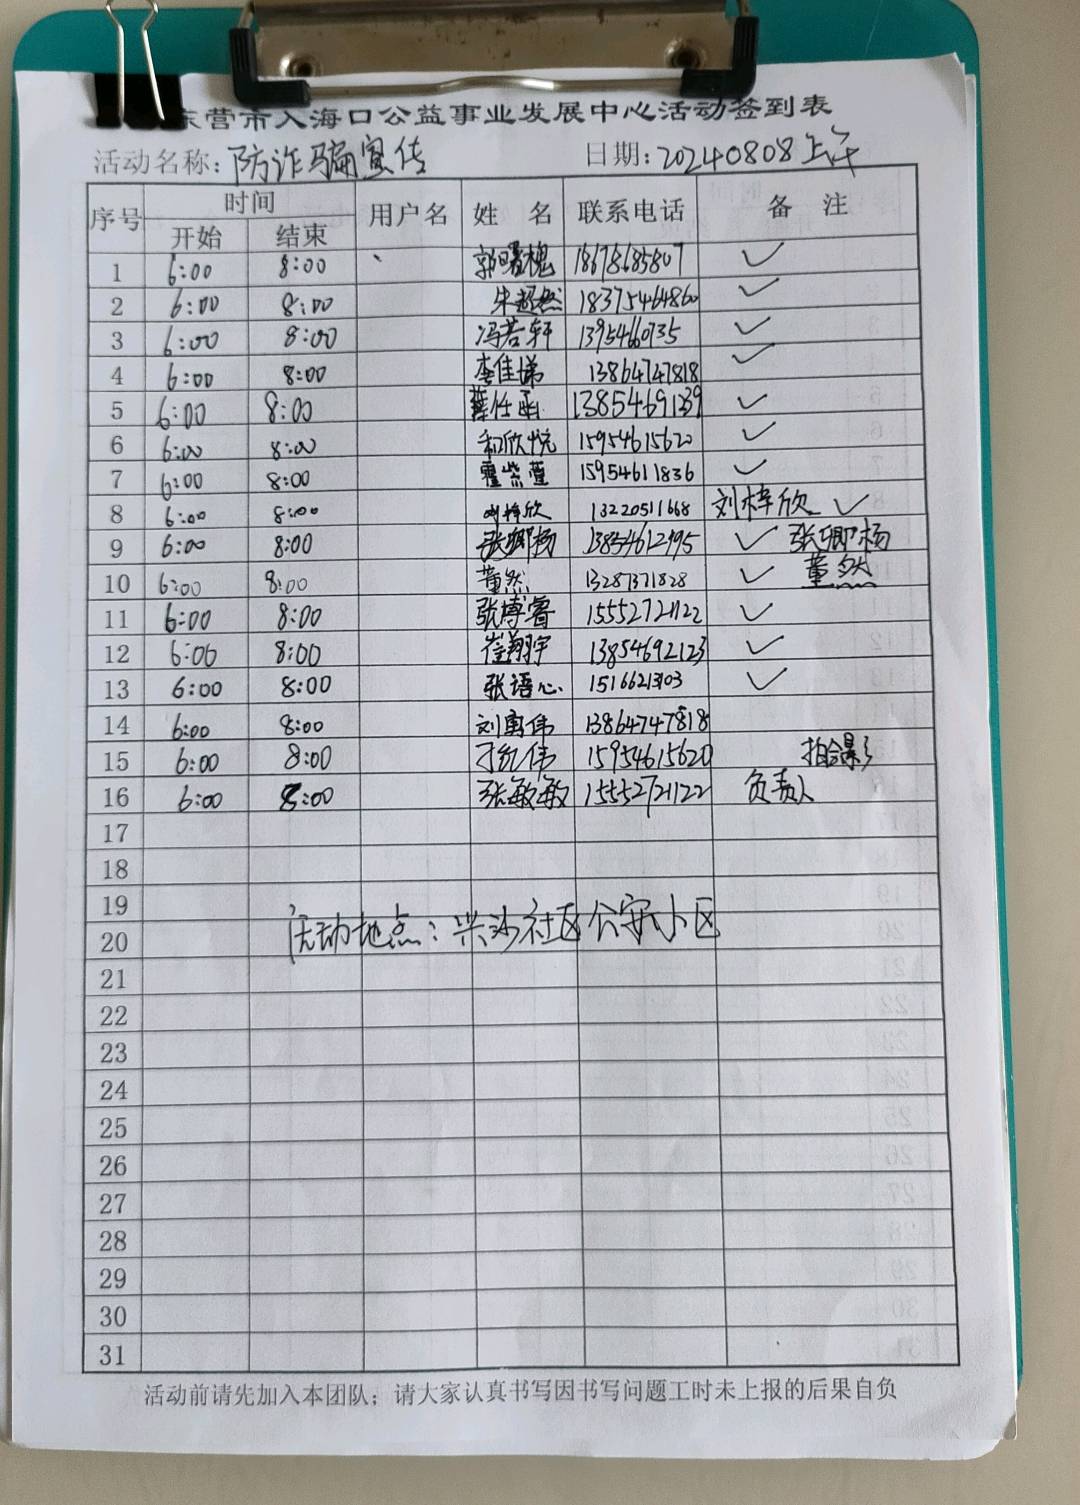 东营市入海口公益事业发展中心活动签到表
活动名称：防诈骗宣传 日期：20240808上午
序号 时间 用户名 姓 名 联系电话 备 注
开始 结束
1 6:00 8:00 郭曙槐 18678685807 ✓
2 6:00 8:00 朱超然 18375464860 ✓
3 6:00 8:00 冯若轩 ✓
4 6:00 8:00 李佳娣 13864747818 ✓
5 6:00 8:00 13854691339 ✓
6 6:00 8:00 和欣悦 15954615620 ✓
7 6:00 8:00 霍紫萱 15954611836 ✓
8 6:00 8:00 刘梓欣 13220511668 刘梓欣 ✓
9 6:00 8:00 张卿杨 13854612995 ✓ 张卿杨
10 6:00 8:00 董然 13287371828 ✓ 董然
11 6:00 8:00 张博睿 15552721122 ✓
12 6:00 8:00 崔翔宇 13854692123 ✓
13 6:00 8:00 张语心 ✓
14 6:00 8:00 13864747818
15 6:00 8:00 15954615620 拍合影
16 6:00 8:00 张敏敏 15552721122 负责人
17
18
19
20 活动地点：兴沙社区公安小区
21
22
23
24
25
26
27
28
29
30
31
活动前请先加入本团队；请大家认真书写因书写问题工时未上报的后果自负